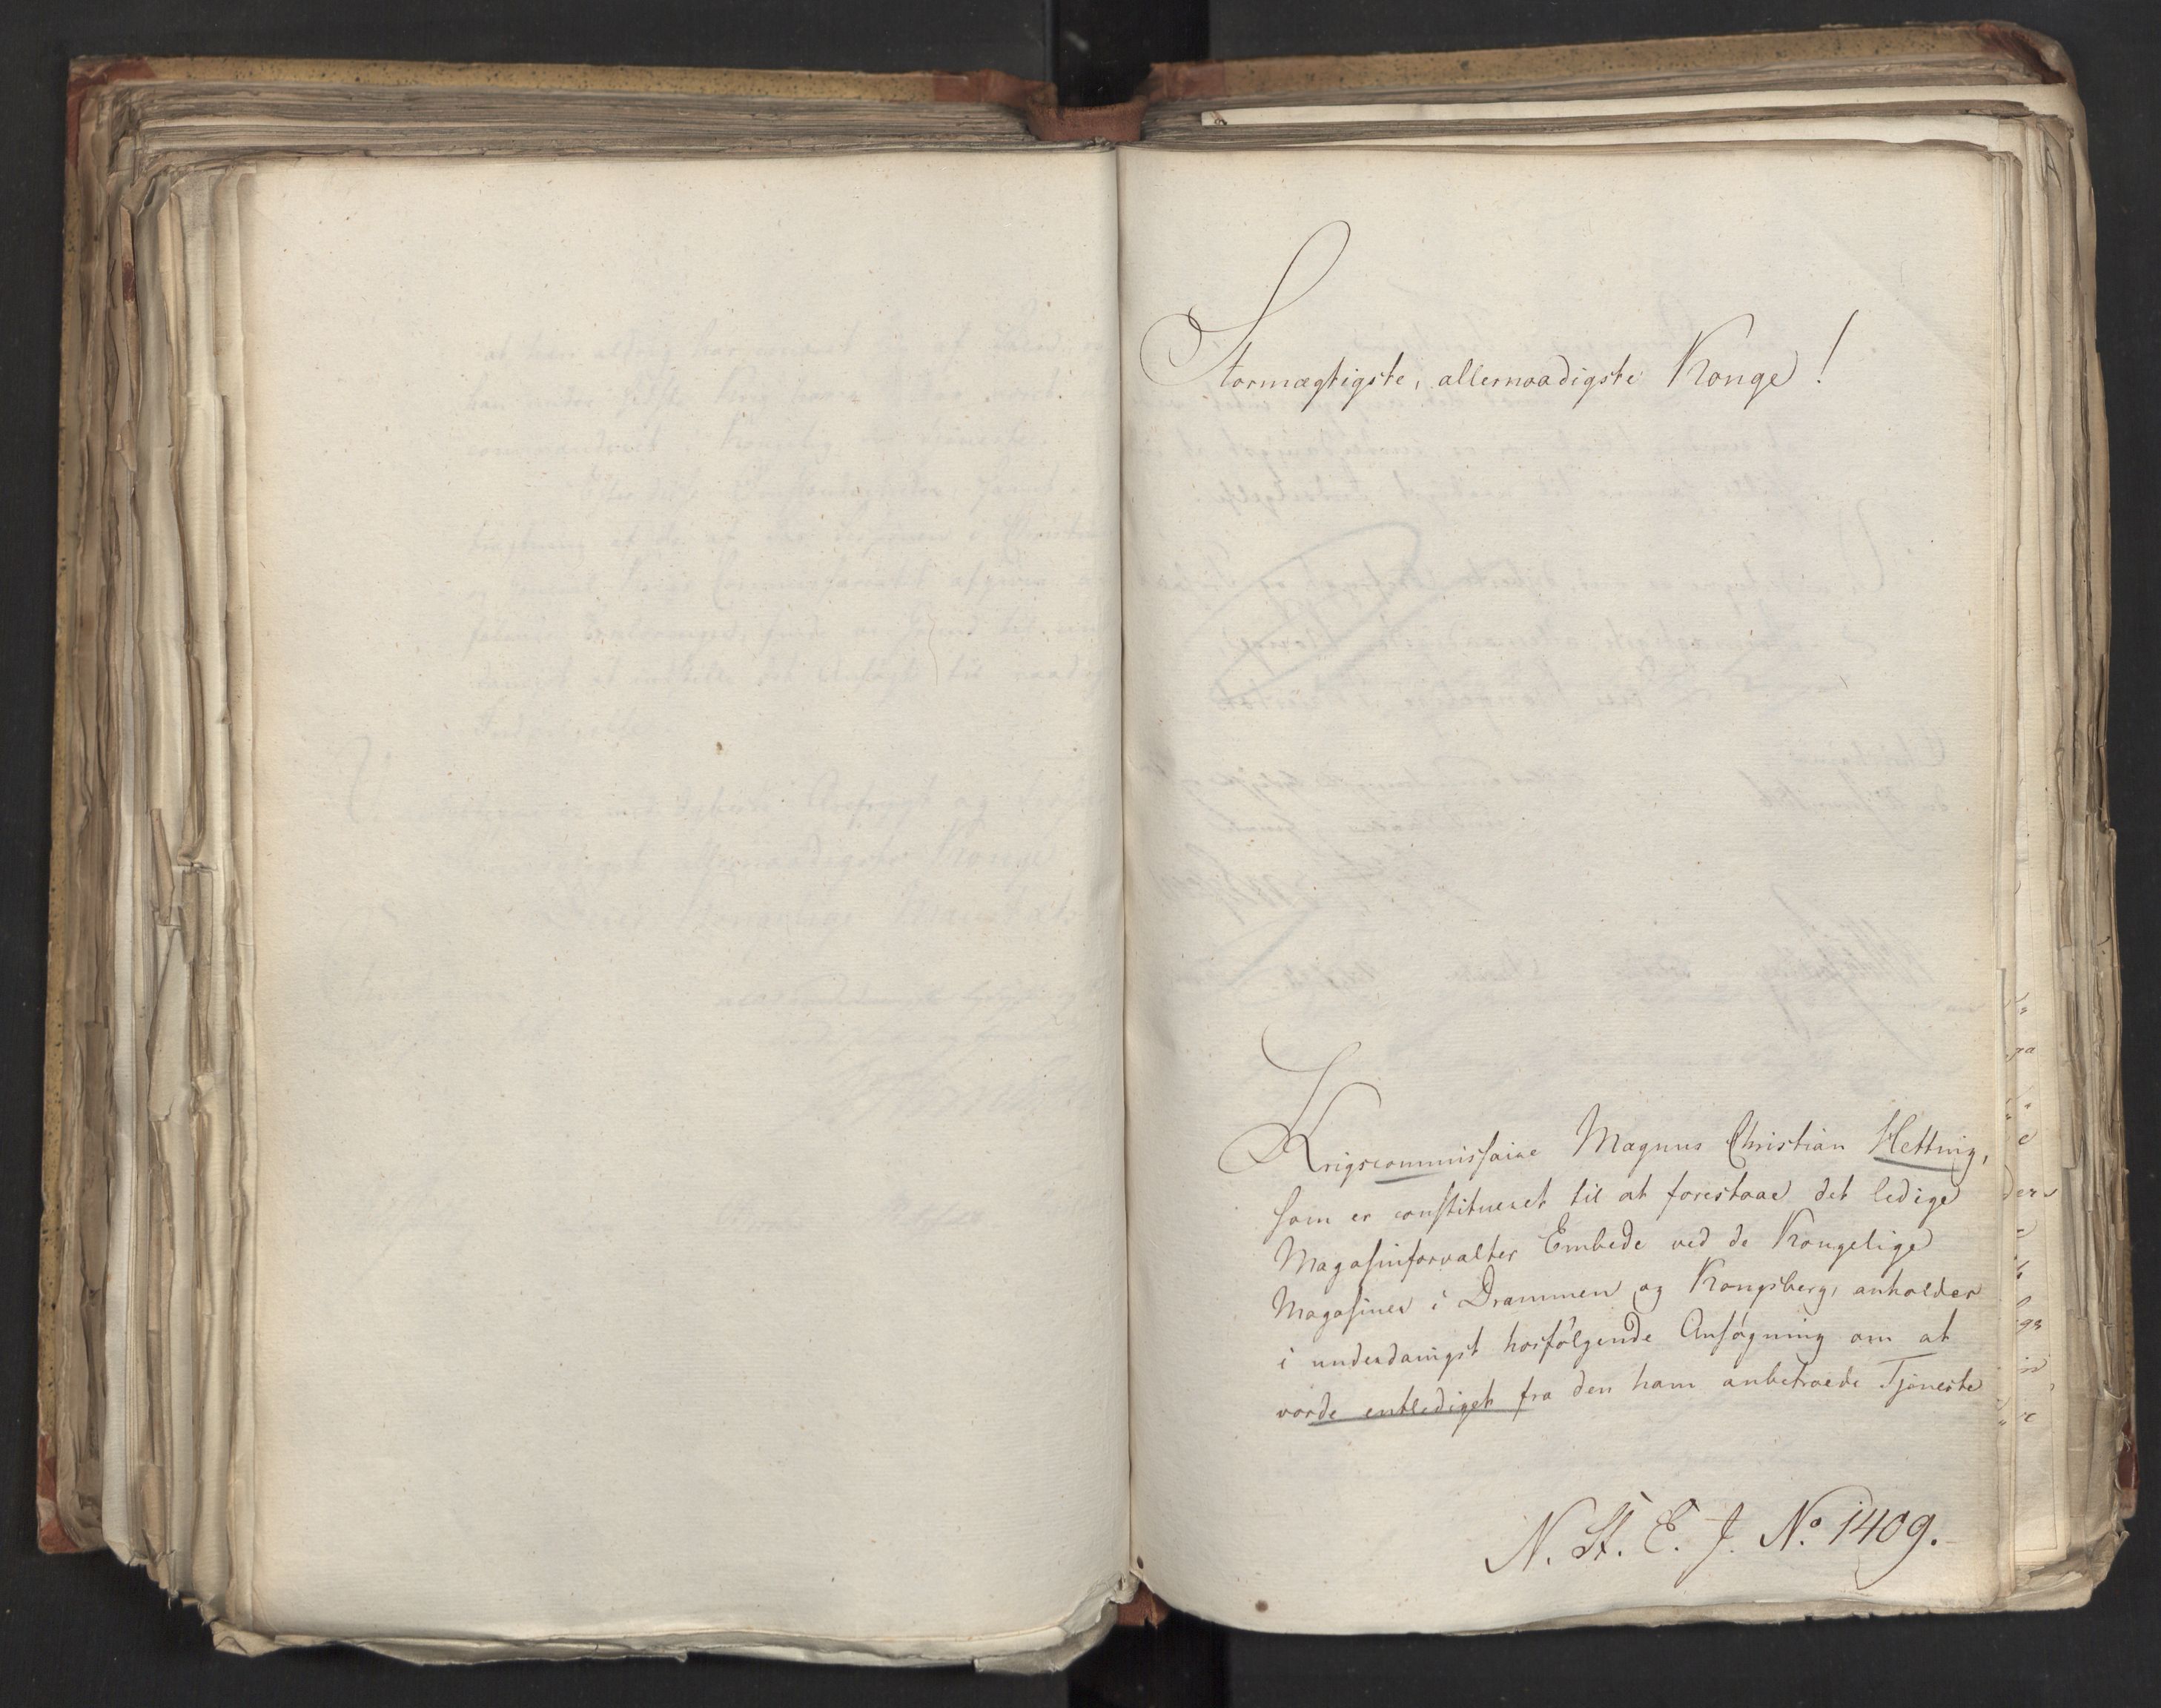 Stormægtigste, allernaadigste Konge!
Krigscommissaire Magnus Christian Hetting,
som er constitueret til at forestaae det ledige
Magasinforvalter Embede ved de Kongelige
Magasiner i Drammen og Kongsberg, anholder
i underdanigst hosfølgende Ansøgning om at
vorde entlediget fra den ham anbetroede Tjeneste
N. St. E. J. No. 1409.